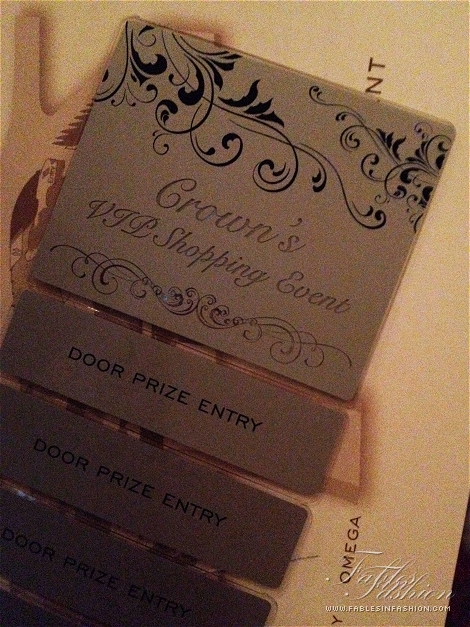 NT
Crown's
VIP Shopping Event
DOOR PRIZE ENTRY
DOOR PRIZE ENTRY
DOOR PRIZE ENTRY
OMEGA
Y
Fables in Fashion
WWW.FABLESINFASHION.COM